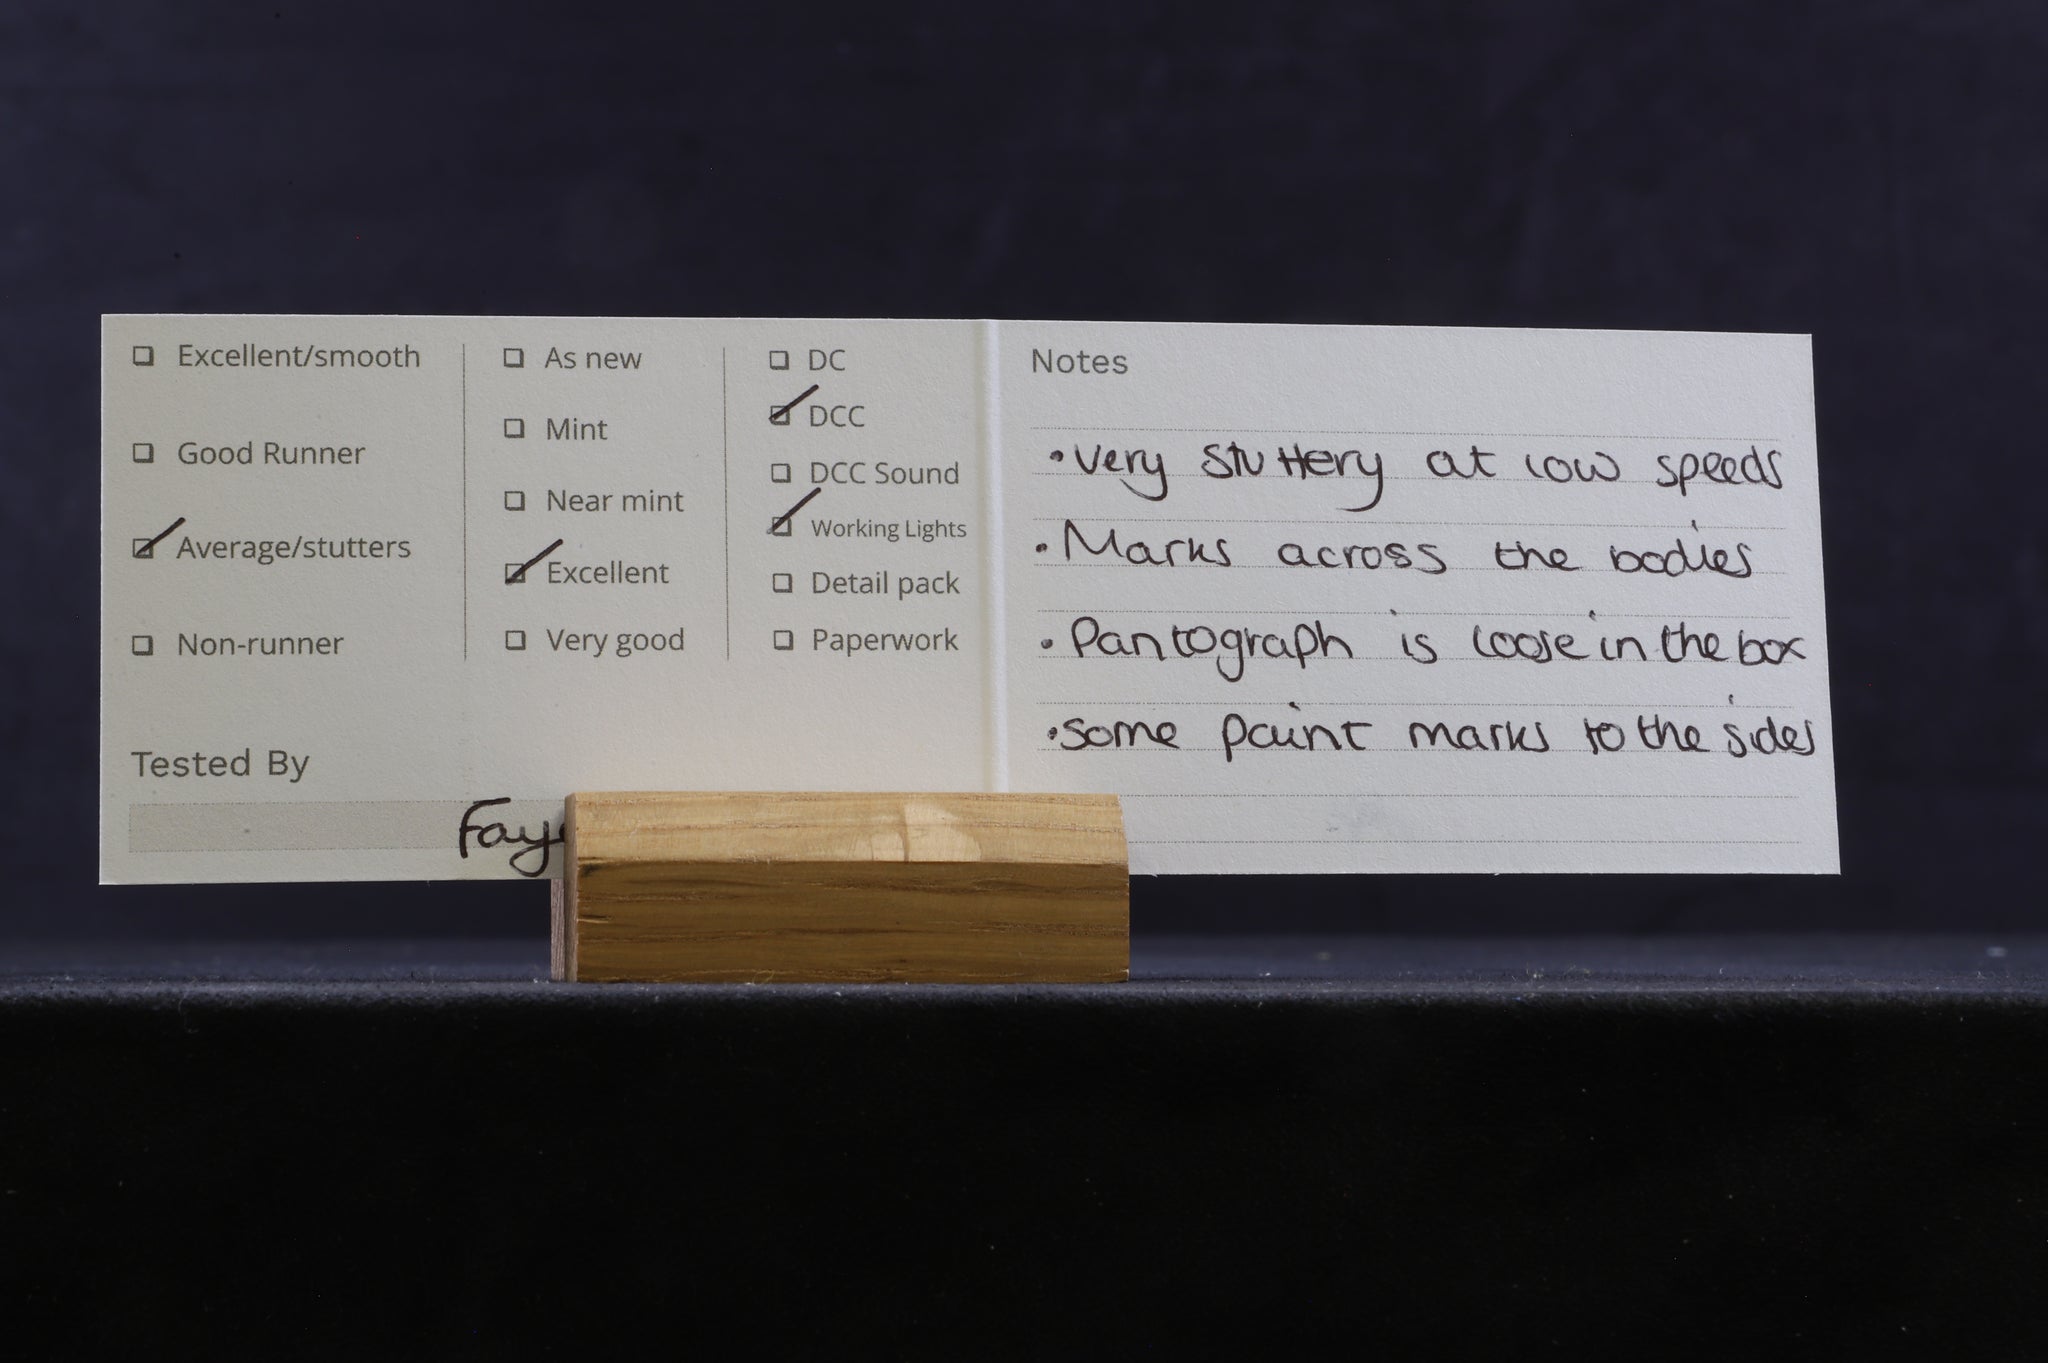 ☐ Excellent/smooth
☐ Good Runner
☑ Average/stutters
☐ Non-runner
☐ As new
☐ Mint
☐ Near mint
☑ Excellent
☐ Very good
☐ DC
☑ DCC
☐ DCC Sound
☑ Working Lights
☐ Detail pack
☐ Paperwork
Tested By
Faye
Notes
• Very stuttery at low speeds
• Marks across the bodies
• Pantograph is loose in the box
• some paint marks to the sides